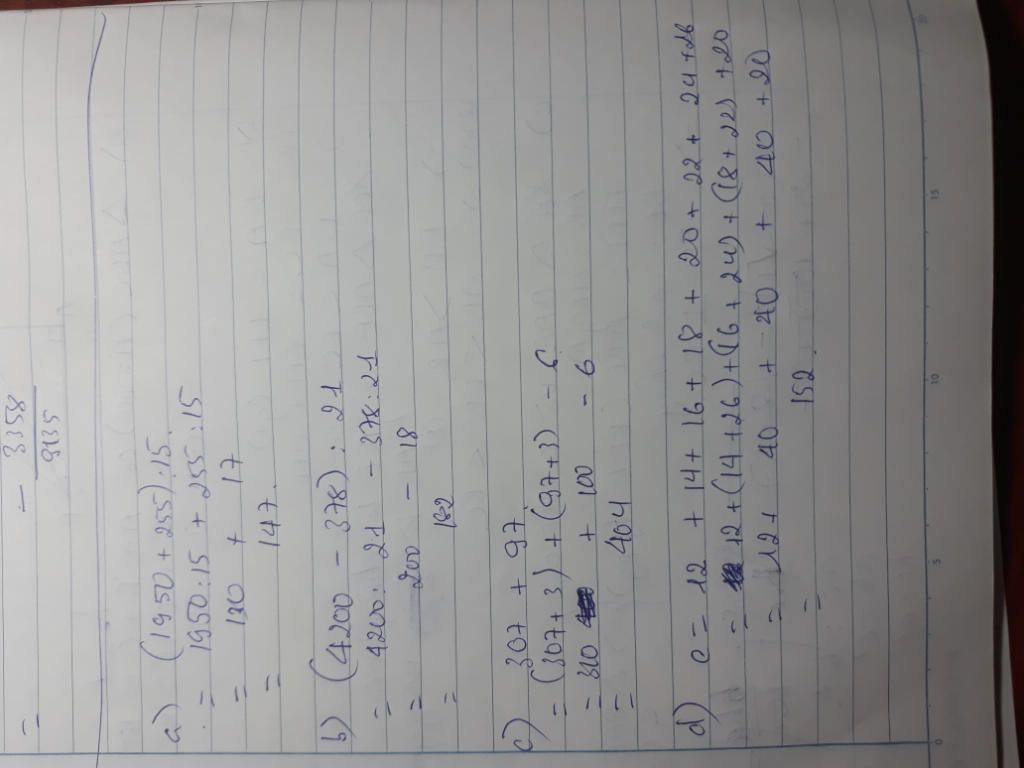 = - 3358
9835
a) (1950 + 255) : 15
= 1950 : 15 + 255 : 15
= 130 + 17
= 147.
b) (4200 - 378) : 21
= 4200 : 21 - 378 : 21
= 200 - 18
= 182
c) 307 + 97
= (307 + 3) + (97 + 3) - 6
= 310 + 100 - 6
= 404
d) C = 12 + 14 + 16 + 18 + 20 + 22 + 24 + 26
= 12 + (14 + 26) + (16 + 24) + (18 + 22) + 20
= 12 + 40 + 40 + 40 + 20
= 152